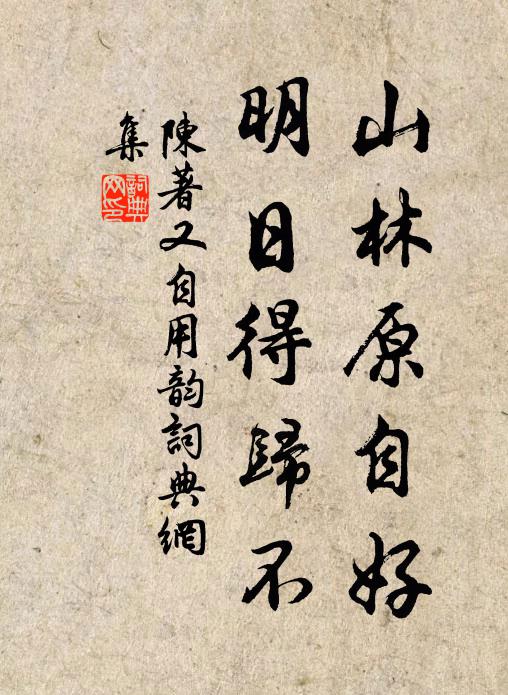 山林原自好
明日得歸不
陳著又自用韵詞典網
集
詞典网印